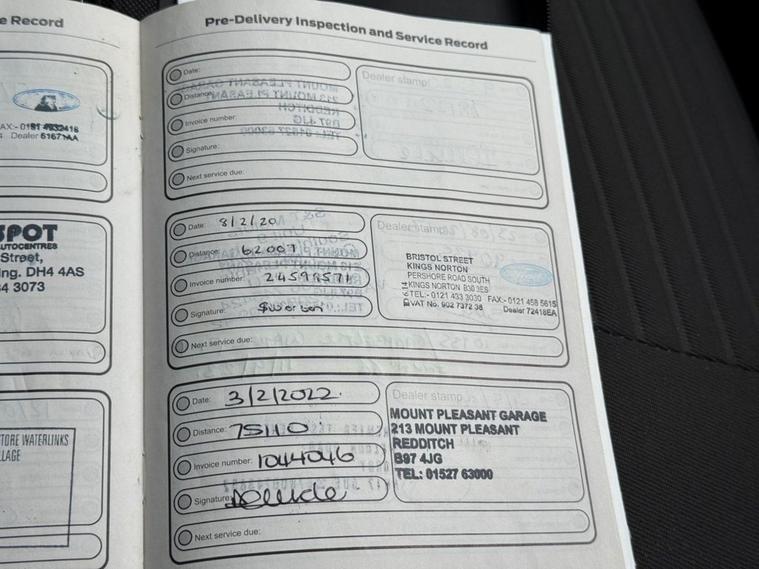 e Record
AX:- 0151 4932416
Dealer 51671AA
SPOT
AUTOCENTRES
Street,
ing. DH4 4AS
34 3073
TORE WATERLINKS
LAGE
Pre-Delivery Inspection and Service Record
Date:
Distance:
Invoice number:
Signature:
Next service due:
Dealer stamp:
Date: 8/2/20
Distance: 62007
Invoice number: 24598571
Signature:
Next service due:
Dealer stamp:
BRISTOL STREET
KINGS NORTON
PERSHORE ROAD SOUTH
KINGS NORTON B30 3ES
TEL:- 0121 433 3030 FAX:-0121 458 5615
VAT No. 902 7372 38 Dealer 72418EA
Date: 3/2/2022.
Distance: 75110
Invoice number: 1044046
Signature:
Next service due:
Dealer stamp
MOUNT PLEASANT GARAGE
213 MOUNT PLEASANT
REDDITCH
B97 4JG
TEL: 01527 63000